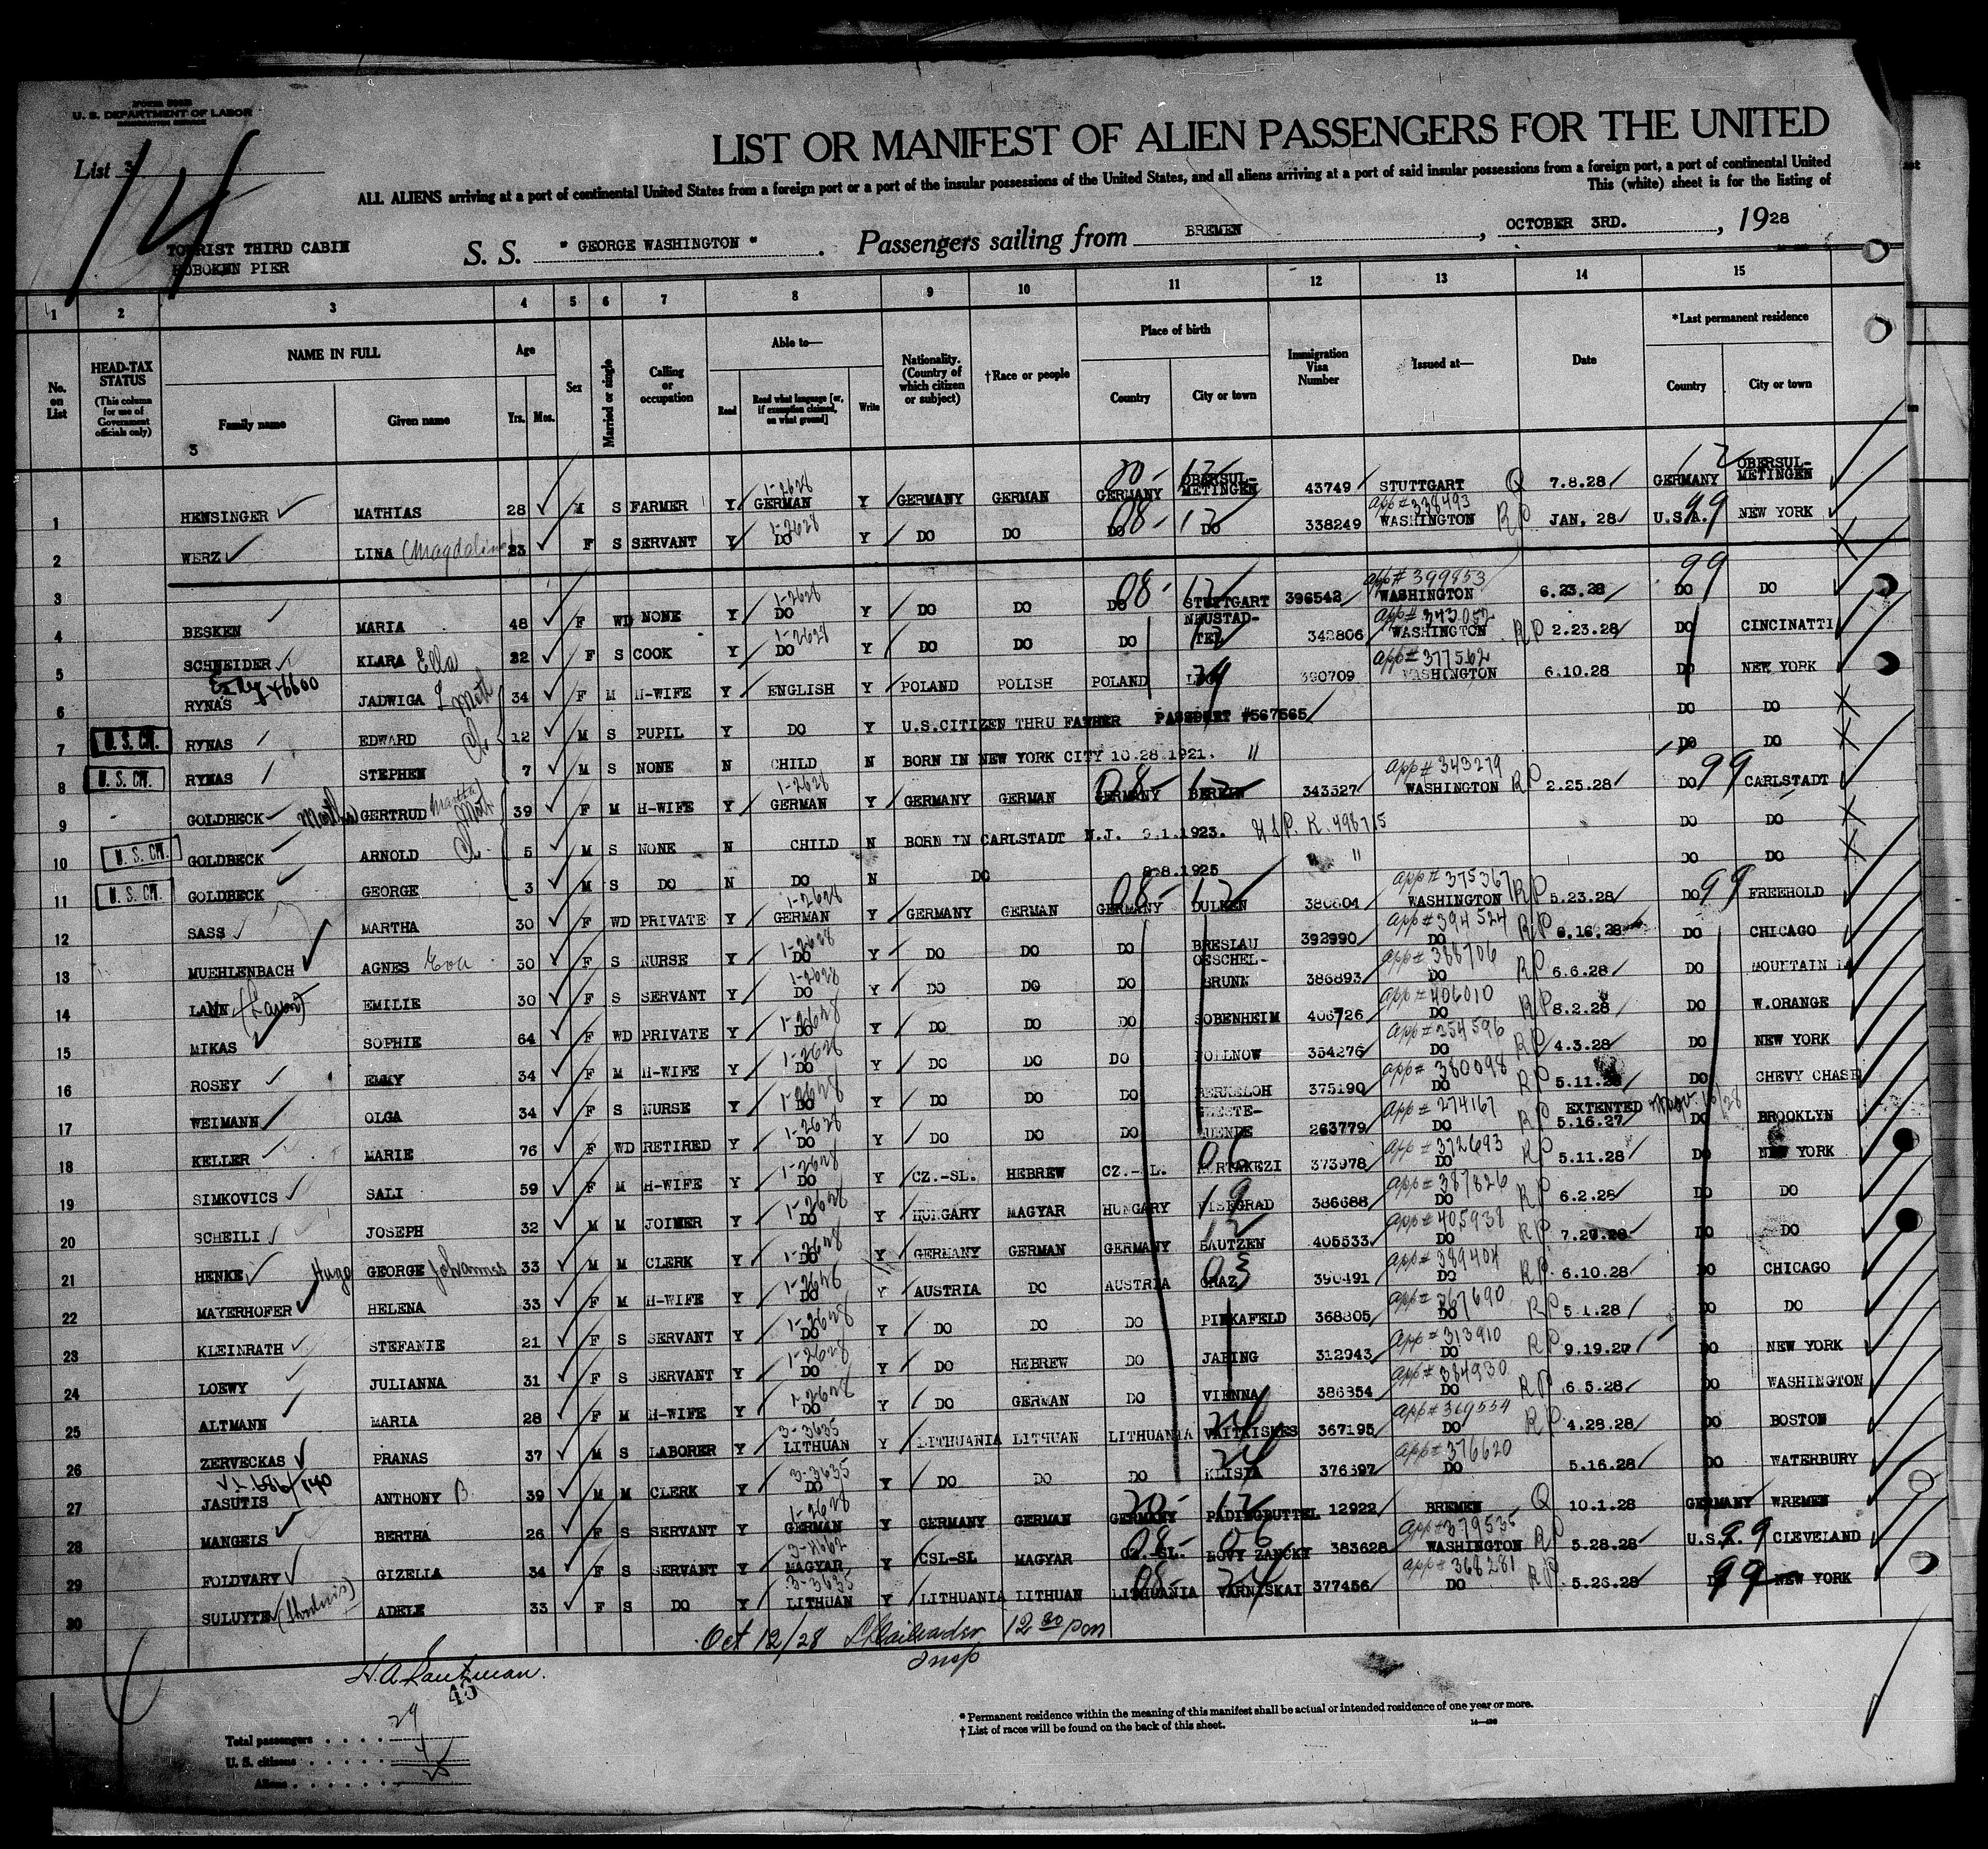 Form 500B
U. S. DEPARTMENT OF LABOR
IMMIGRATION SERVICE
List 3
14
LIST OR MANIFEST OF ALIEN PASSENGERS FOR THE UNITED
ALL ALIENS arriving at a port of continental United States from a foreign port or a port of the insular possessions of the United States, and all aliens arriving at a port of said insular possessions from a foreign port, a port of continental United
This (white) sheet is for the listing of
TOURIST THIRD CABIN
HOBOKEN PIER
S. S. " GEORGE WASHINGTON ". Passengers sailing from BREMEN, OCTOBER 3RD., 1928
1 2 3 4 5 6 7 8 9 10 11 12 13 14 15
No. on List
HEAD-TAX STATUS (This column for use of Government officials only)
NAME IN FULL Family name Given name
Age Yrs. Mos.
Sex
Married or single
Calling or occupation
Able to— Read Read what language [or, if exemption claimed, on what ground] Write
Nationality. (Country of which citizen or subject)
†Race or people
Place of birth Country City or town
Immigration Visa Number
Issued at—
Date
*Last permanent residence Country City or town
3
1 HENSINGER MATHIAS 28 M S FARMER Y 1-2628 GERMAN Y GERMANY GERMAN 20- GERMANY 12 OBERSUL-METINGEN 43749 STUTTGART Q 7.8.28 12 GERMANY OBERSUL-METINGEN
2 WERZ LINA (Magdalina) 23 F S SERVANT Y 1-2628 DO Y DO DO 08- DO 12 DO 338249 app# 338493 WASHINGTON RP JAN. 28 U.S.A. 99 NEW YORK
3
4 BESKEN MARIA 48 F WD NONE Y 1-2628 DO Y DO DO 08- DO 12 STUTTGART 396542 app# 399853 WASHINGTON 6.23.28 99 DO DO
5 SCHNEIDER KLARA Ella 22 F S COOK Y 1-2628 DO Y DO DO DO 12 NEUSTAD-TEL 342806 app# 343052 WASHINGTON RP 2.23.28 DO CINCINATTI
6 RYNAS JADWIGA 34 F M H-WIFE Y ENGLISH Y POLAND POLISH POLAND 390709 app# 377562 WASHINGTON 6.10.28 DO NEW YORK
7 U. S. CIT. RYNAS EDWARD 12 M S PUPIL Y DO Y U.S.CITIZEN THRU FATHER PASSPORT #567565 DO DO
8 U. S. CIT. RYNAS STEPHEN 7 M S NONE N CHILD N BORN IN NEW YORK CITY 10.28.1921. " DO DO
9 GOLDBECK Martha GERTRUD Martha 39 F M H-WIFE Y 1-2628 GERMAN Y GERMANY GERMAN 08- GERMANY 12 BERLIN 343527 app# 343279 WASHINGTON RP 2.25.28 DO 99 CARLSTADT
10 U. S. CIT. GOLDBECK ARNOLD 5 M S NONE N CHILD N BORN IN CARLSTADT N.J. .1.1923. DO DO
11 U. S. CIT. GOLDBECK GEORGE 3 M S DO N DO N DO 8.1925 " DO DO
12 SASS MARTHA 30 F WD PRIVATE Y 1-2628 GERMAN Y GERMANY GERMAN 08- GERMANY 12 DULKEN 380604 app# 375367 WASHINGTON RP 5.23.28 DO 99 FREEHOLD
13 MUEHLENBACH AGNES Eva 30 F S NURSE Y 1-2628 DO Y DO DO DO BRESLAU 392990 app# 394524 DO RP 6.16.28 DO CHICAGO
14 LANN EMILIE 30 F S SERVANT Y 1-2628 DO Y DO DO DO OESCHEL-BRUNN 386893 app# 388706 DO RP 6.6.28 DO MOUNTAIN
15 MIKAS SOPHIE 64 F WD PRIVATE Y 1-2628 DO Y DO DO DO SOBENHEIM 406726 app# 406010 DO RP 8.2.28 DO W.ORANGE
16 ROSEY EMMY 34 F M H-WIFE Y 1-2628 DO Y DO DO DO POLLNOW 354276 app# 354596 DO RP 4.3.28 DO NEW YORK
17 WEIMANN OLGA 34 F S NURSE Y 1-2628 DO Y DO DO DO 375190 app# 380098 DO RP 5.11.28 DO CHEVY CHASE
18 KELLER MARIE 76 F WD RETIRED Y 1-2628 DO Y DO DO DO 263779 app# 274167 DO RP EXTENTED 5.16.27 DO BROOKLYN
19 SIMKOVICS SALI 59 F M H-WIFE Y 1-2628 DO Y CZ.-SL. HEBREW CZ.-SL. 06 373978 app# 372693 DO RP 5.11.28 DO NEW YORK
20 SCHEILI JOSEPH 32 M M JOINER Y 1-2628 DO Y HUNGARY MAGYAR HUNGARY 19 VISEGRAD 386688 app# 387826 DO RP 6.2.28 DO DO
21 HENKE Hugo GEORGE Johannes 33 M M CLERK Y 1-2628 DO Y GERMANY GERMAN GERMANY 12 BAUTZEN 405533 app# 405938 DO RP 7.20.28 DO DO
22 MAYERHOFER HELENA 33 F M H-WIFE Y 1-2628 DO Y AUSTRIA DO AUSTRIA 03 GRAZ 390491 app# 389404 DO RP 6.10.28 DO CHICAGO
23 KLEINRATH STEFANIE 21 F S SERVANT Y 1-2628 DO Y DO DO DO PINKAFELD 368805 app# 367690 DO RP 5.1.28 DO DO
24 LOEWY JULIANNA 31 F S SERVANT Y 1-2628 DO Y DO HEBREW DO JABING 312943 app# 313910 DO RP 9.19.27 DO NEW YORK
25 ALTMANN MARIA 28 F M H-WIFE Y 1-2628 DO Y DO GERMAN DO VIENNA 386354 app# 384930 DO RP 6.5.28 DO WASHINGTON
26 ZERVECKAS PRANAS 37 M S LABORER Y 3-3635 LITHUAN Y LITHUANIA LITHUAN LITHUANIA 24 VAITAISKES 367195 app# 369554 DO RP 4.28.28 DO BOSTON
27 JASUTIS ANTHONY B 39 M M CLERK Y 3-3635 DO Y DO DO DO 24 KLISIA 376397 app# 376620 DO 5.16.28 DO WATERBURY
28 MANGELS BERTHA 26 F S SERVANT Y 1-2628 GERMAN Y GERMANY GERMAN 20- GERMANY 12 PADINGBUTTEL 12922 BREMEN Q 10.1.28 GERMANY WREMEN
29 FOLDVARY GIZELLA 34 F S SERVANT Y 3-4662 MAGYAR Y CSL-SL MAGYAR 08- CZ.-SL. 06 NOVY ZANCKY 383628 app# 379535 WASHINGTON RP 5.28.28 U.S. 99 CLEVELAND
30 SULUYTE ADELE 33 F S DO Y 3-3635 LITHUAN Y LITHUANIA LITHUAN 08- LITHUANIA 24 VARNISKAI 377456 app# 368281 DO RP 5.26.28 99 NEW YORK
Oct 12/28 12 30 pm
Insp
H.A. Lautman.
46
* Permanent residence within the meaning of this manifest shall be actual or intended residence of one year or more.
† List of races will be found on the back of this sheet.
Total passengers . . . . 29
U. S. citizens . . . . . 4
Aliens . . . . . . 25